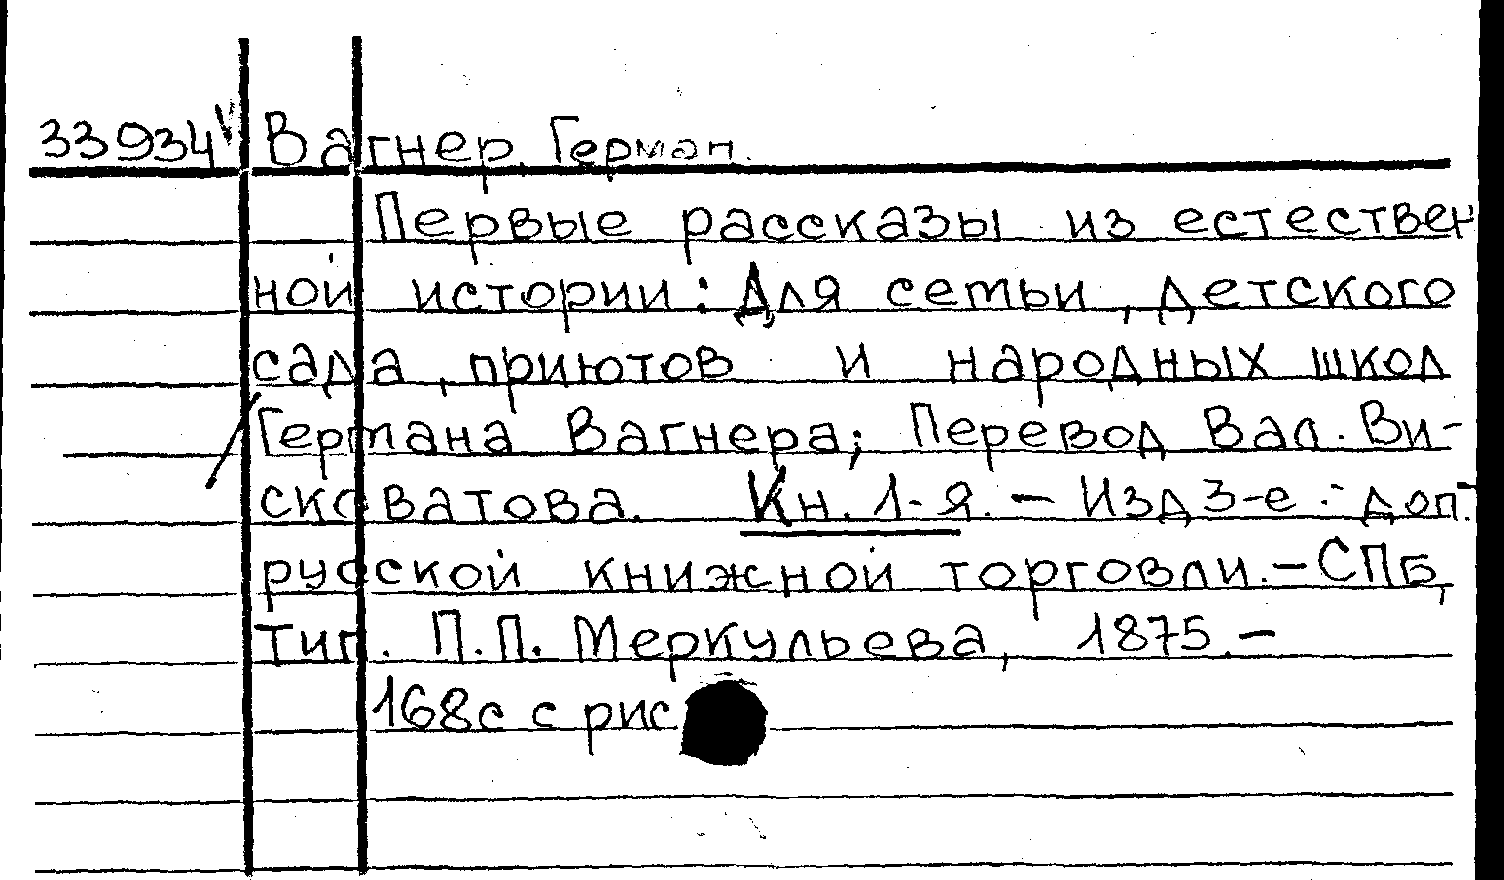 33934 Вагнер, Герман.
Первые рассказы из естествен
ной истории: Для семьи, детского
сада, приютов и народных школ
Германа Вагнера; Перевод Вал. Ви-
сковатова. Кн. 1-я. - Изд 3-е. - доп.
русской книжной торговли. - СПБ,
тип. П.П. Меркульева, 1875. -
168с с рис